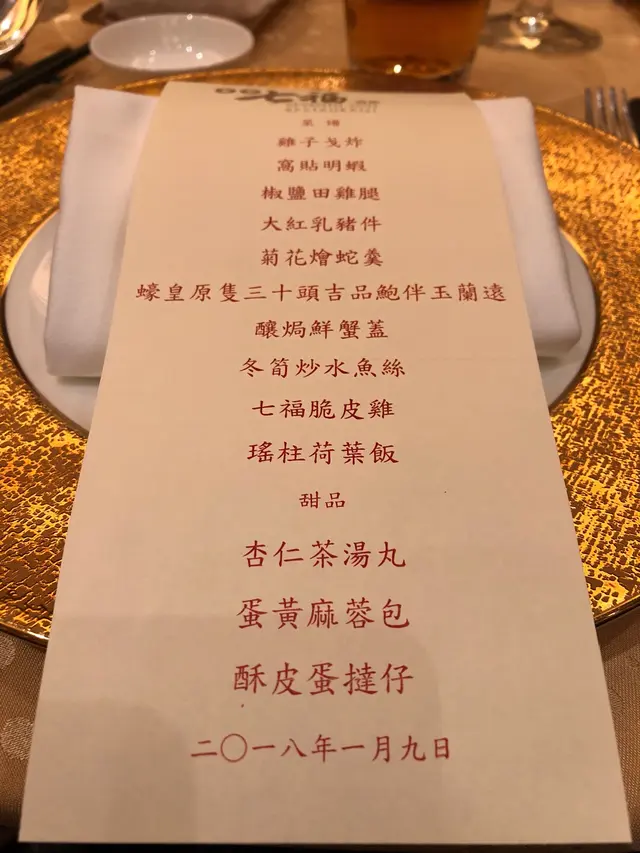 菜譜
雞子戈炸
窩貼明蝦
椒鹽田雞腿
大紅乳豬件
菊花燴蛇羹
蠔皇原隻三十頭吉品鮑伴玉蘭遠
釀焗鮮蟹蓋
冬筍炒水魚絲
七福脆皮雞
瑤柱荷葉飯
甜品
杏仁茶湯丸
蛋黃麻蓉包
酥皮蛋撻仔
二〇一八年一月九日